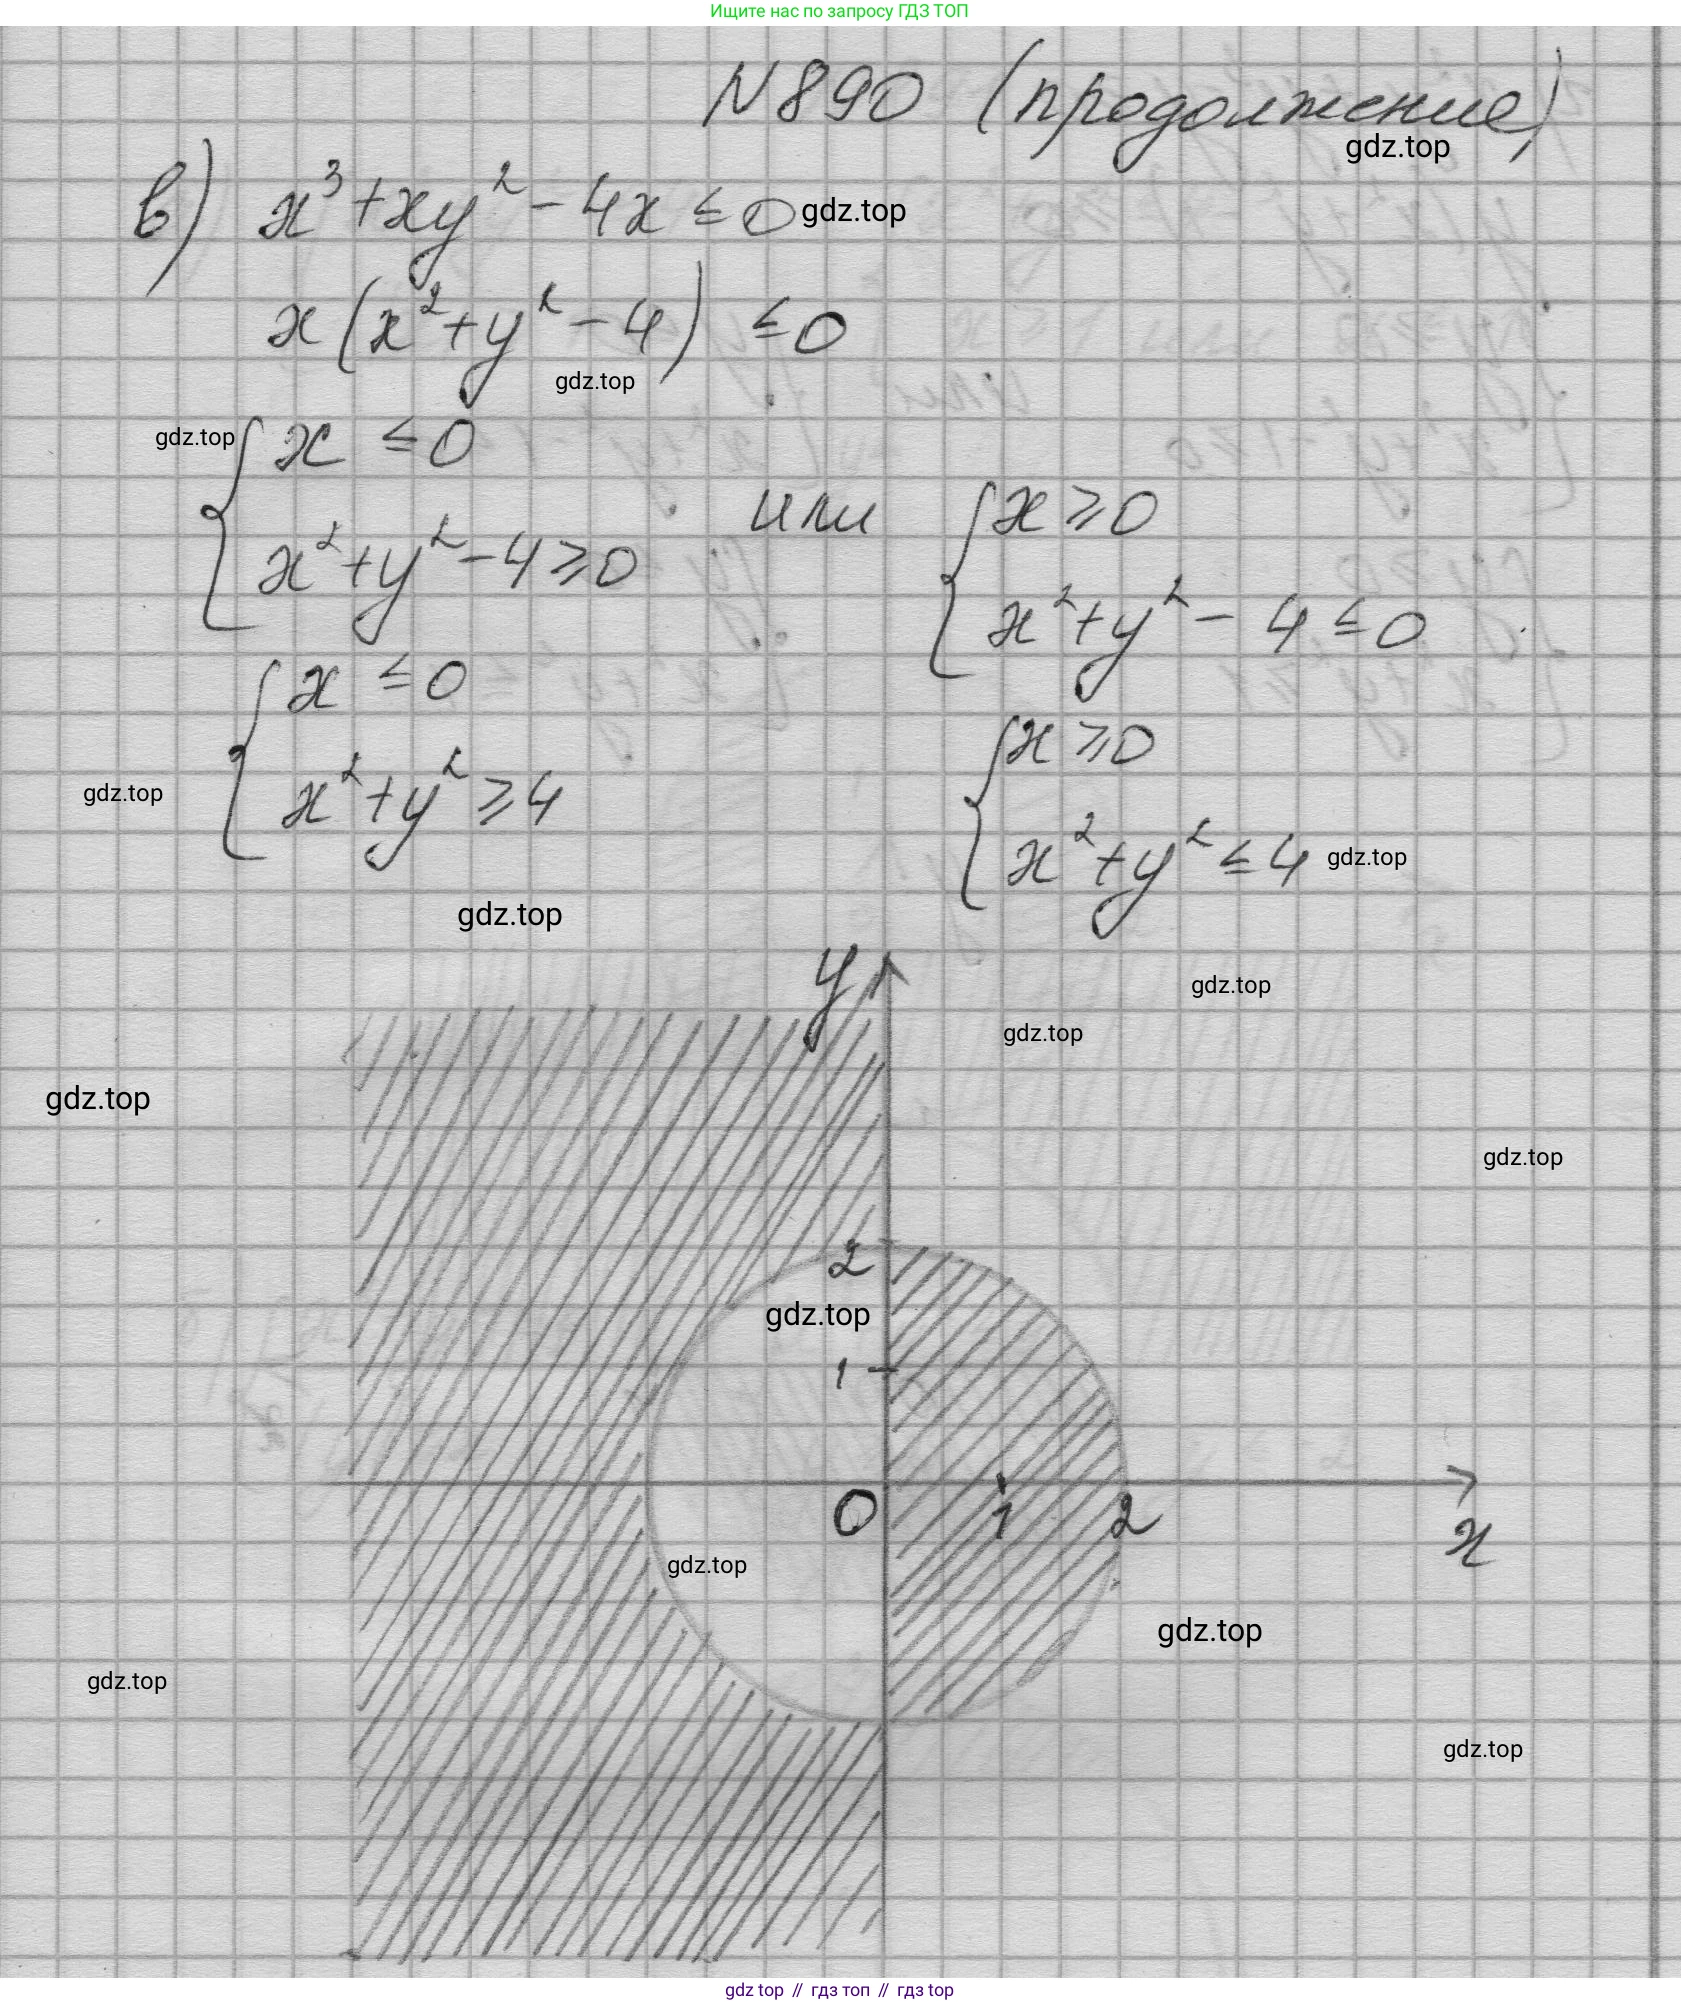 Ищите нас по запросу ГДЗ ТОП
N890 (продолжение)
gdz.top
в) x³+xy²-4x≤0 gdz.top
x(x²+y²-4) ≤0
gdz.top
gdz.top
{ x ≤0
x²+y²-4≥0
или
{ x≥0
x²+y²-4≤0
{ x ≤0
x²+y²≥4
{ x≥0
x²+y²≤4
gdz.top
gdz.top
gdz.top
y
gdz.top
gdz.top
gdz.top
gdz.top
2
gdz.top
1
0 1 2
x
gdz.top
gdz.top
gdz.top
gdz.top
gdz top // гдз топ // гдз top